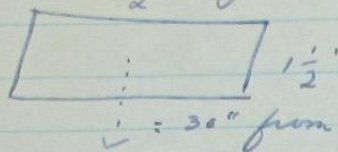 2
1 1/2"
= 30" from